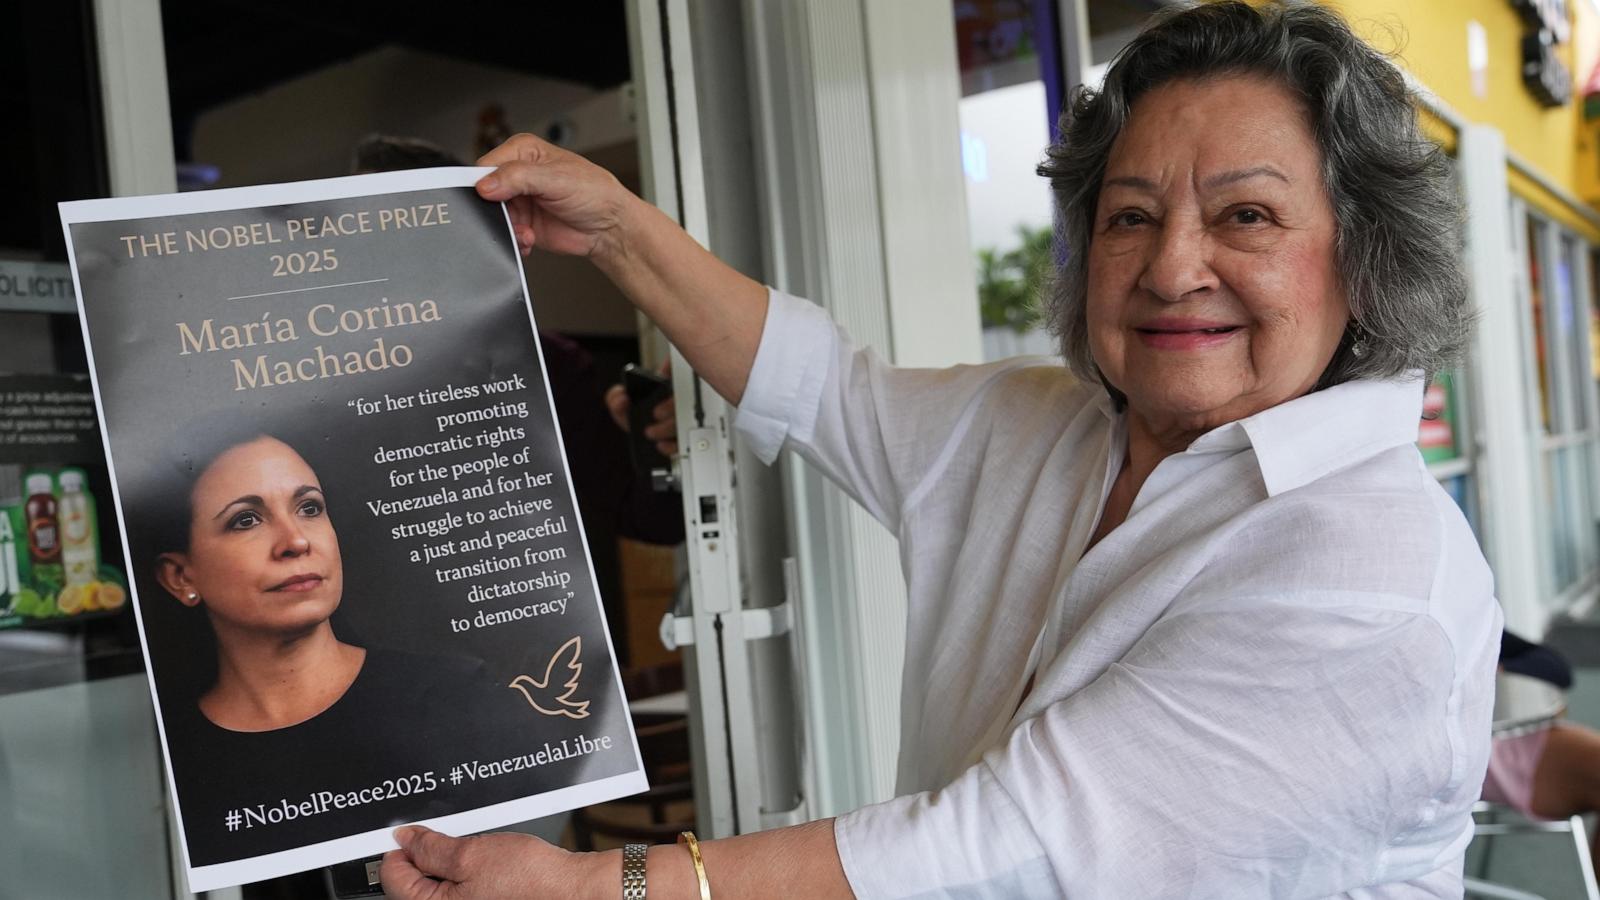 THE NOBEL PEACE PRIZE
2025
María Corina
Machado
“for her tireless work
promoting
democratic rights
for the people of
Venezuela and for her
struggle to achieve
a just and peaceful
transition from
dictatorship
to democracy”
#NobelPeace2025 · #VenezuelaLibre
OLICIT
a price adjustment
of acceptance.